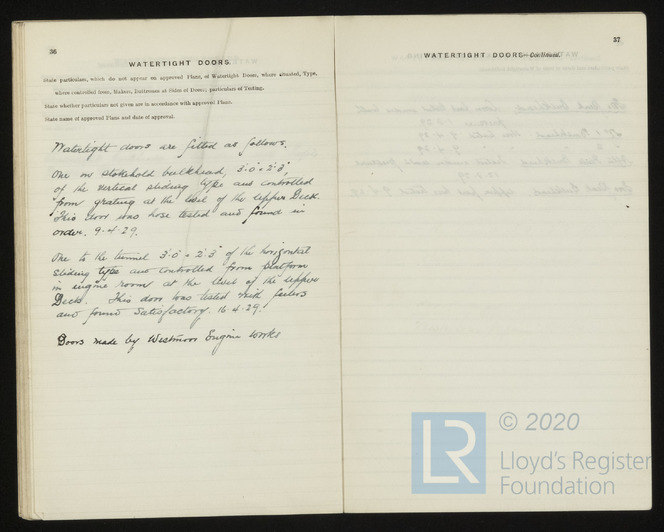 36
WATERTIGHT DOORS.
State particulars, which do not appear on approved Plans, of Watertight Doors, where situated, Type,
where controlled from, Makers, Buttresses at Sides of Doors; particulars of Testing.
State whether particulars not given are in accordance with approved Plans.
State name of approved Plans and date of approval.
Watertight doors are fitted as follows.
One on stokehold bulkhead, 3'.0" × 2'.3",
of the vertical sliding type and controlled
from grating at the level of the Upper Deck.
This door was hose tested and found in
order. 9.4.29.
One to the tunnel 3'.0" × 2'.3" of the horizontal
sliding type and controlled from platform
in engine room at the level of the Upper
Deck. This door was tested with feelers
and found satisfactory 16.4.29.
Doors made by Westmoor Engine Works
37
WATERTIGHT DOORS—Continued.
© 2020
LR
Lloyd's Register
Foundation